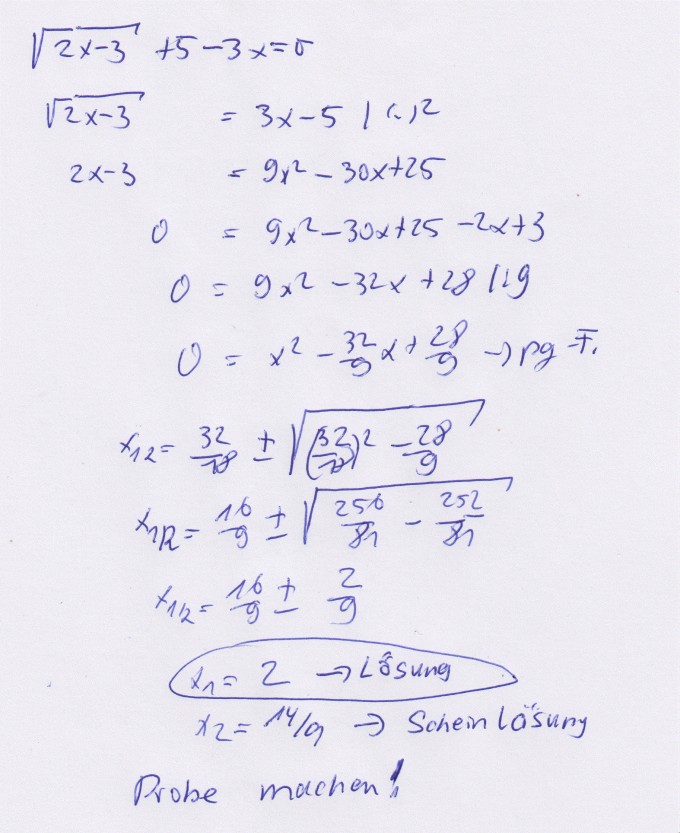 √(2x-3) +5-3x=0
√(2x-3) = 3x-5 | (..)²
2x-3 = 9x²-30x+25
0 = 9x²-30x+25-2x+3
0 = 9x²-32x+28 |:9
0 = x²-32/9x+28/9 → pq-F.
x₁₂= 32/18 ± √((32/18)²-28/9)
x₁/₂= 16/9 ± √(256/81 - 252/81)
x₁/₂= 16/9 ± 2/9
x₁= 2 → Lösung
x₂= 14/9 → Scheinlösung
Probe machen!